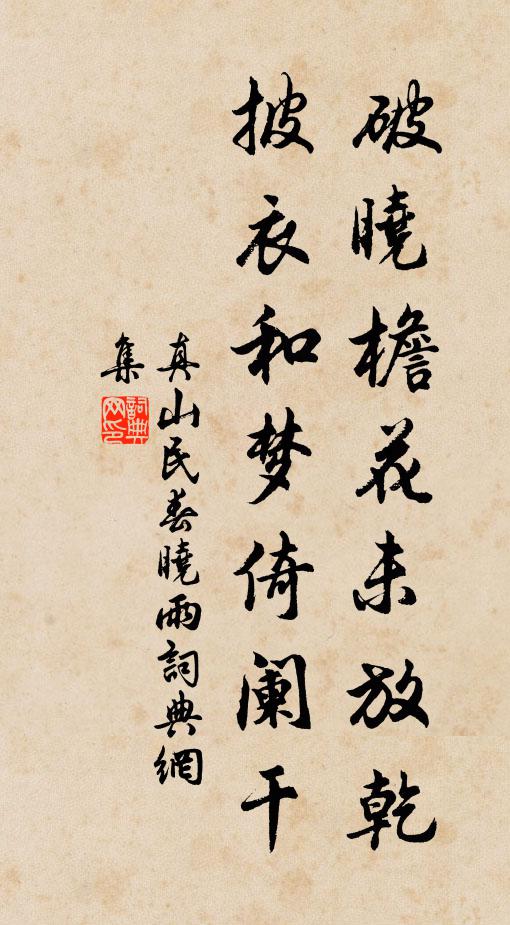 破曉檐花未放乾
披衣和梦倚阑干
真山民春曉雨詞典網
集
詞典網印